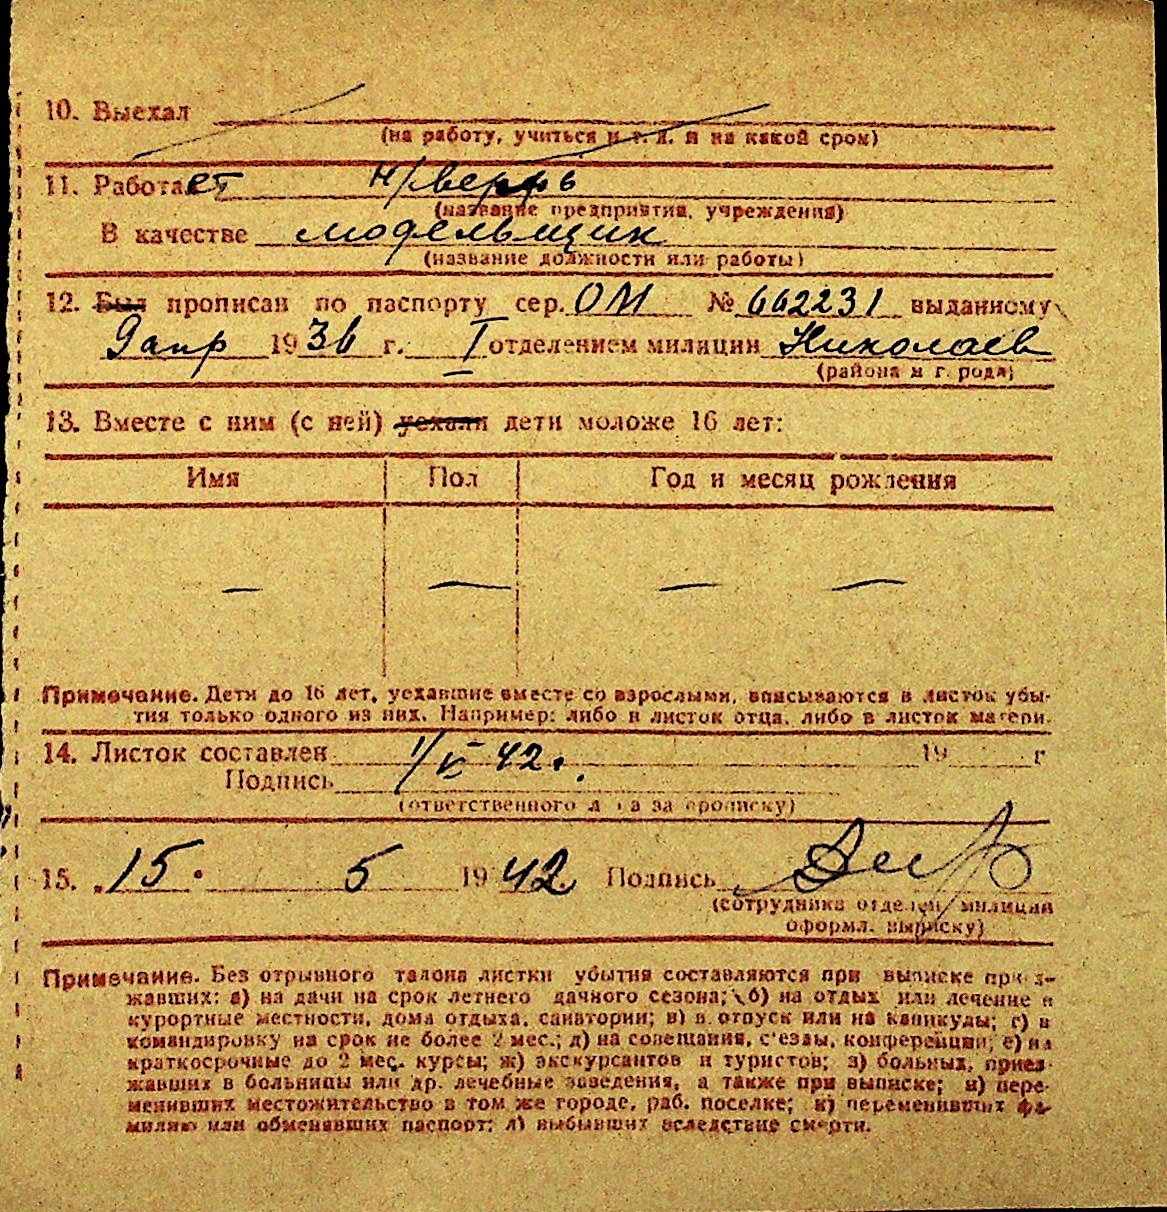 10. Выехал
(на работу, учиться и т. д. и на какой срок)
11. Работает н/верфь
(название предприятия, учреждения)
В качестве модельщик
(название должности или работы)
12. Был прописан по паспорту сер. ОМ № 662231 выданному
9 апр 1936 г. I отделением милиции Николаев
(района и города)
13. Вместе с ним (с ней) уехали дети моложе 16 лет:
Имя Пол Год и месяц рождения
— — — —
Примечание. Дети до 16 лет, уехавшие вместе со взрослыми, вписываются в листок убы-
тия только одного из них. Например: либо в листок отца, либо в листок матери.
14. Листок составлен 1/V 42. 19 г
Подпись
(ответственного лица за прописку)
15. 15. 5 1942 Подпись
(сотрудника отделен. милиции
оформл. выписку)
Примечание. Без отрывного талона листки убытия составляются при выписке приез-
жавших: а) на дачи на срок летнего дачного сезона; б) на отдых или лечение в
курортные местности, дома отдыха, санатории; в) в отпуск или на каникулы; г) в
командировку на срок не более 2 мес.; д) на совещания, с'езды, конференции; е) на
краткосрочные до 2 мес. курсы; ж) экскурсантов и туристов; з) больных, приез-
жавших в больницы или др. лечебные заведения, а также при выписке; и) пере-
менивших местожительство в том же городе, раб. поселке; к) переменивших фа-
милию или обменявших паспорт; л) выбывших вследствие смерти.